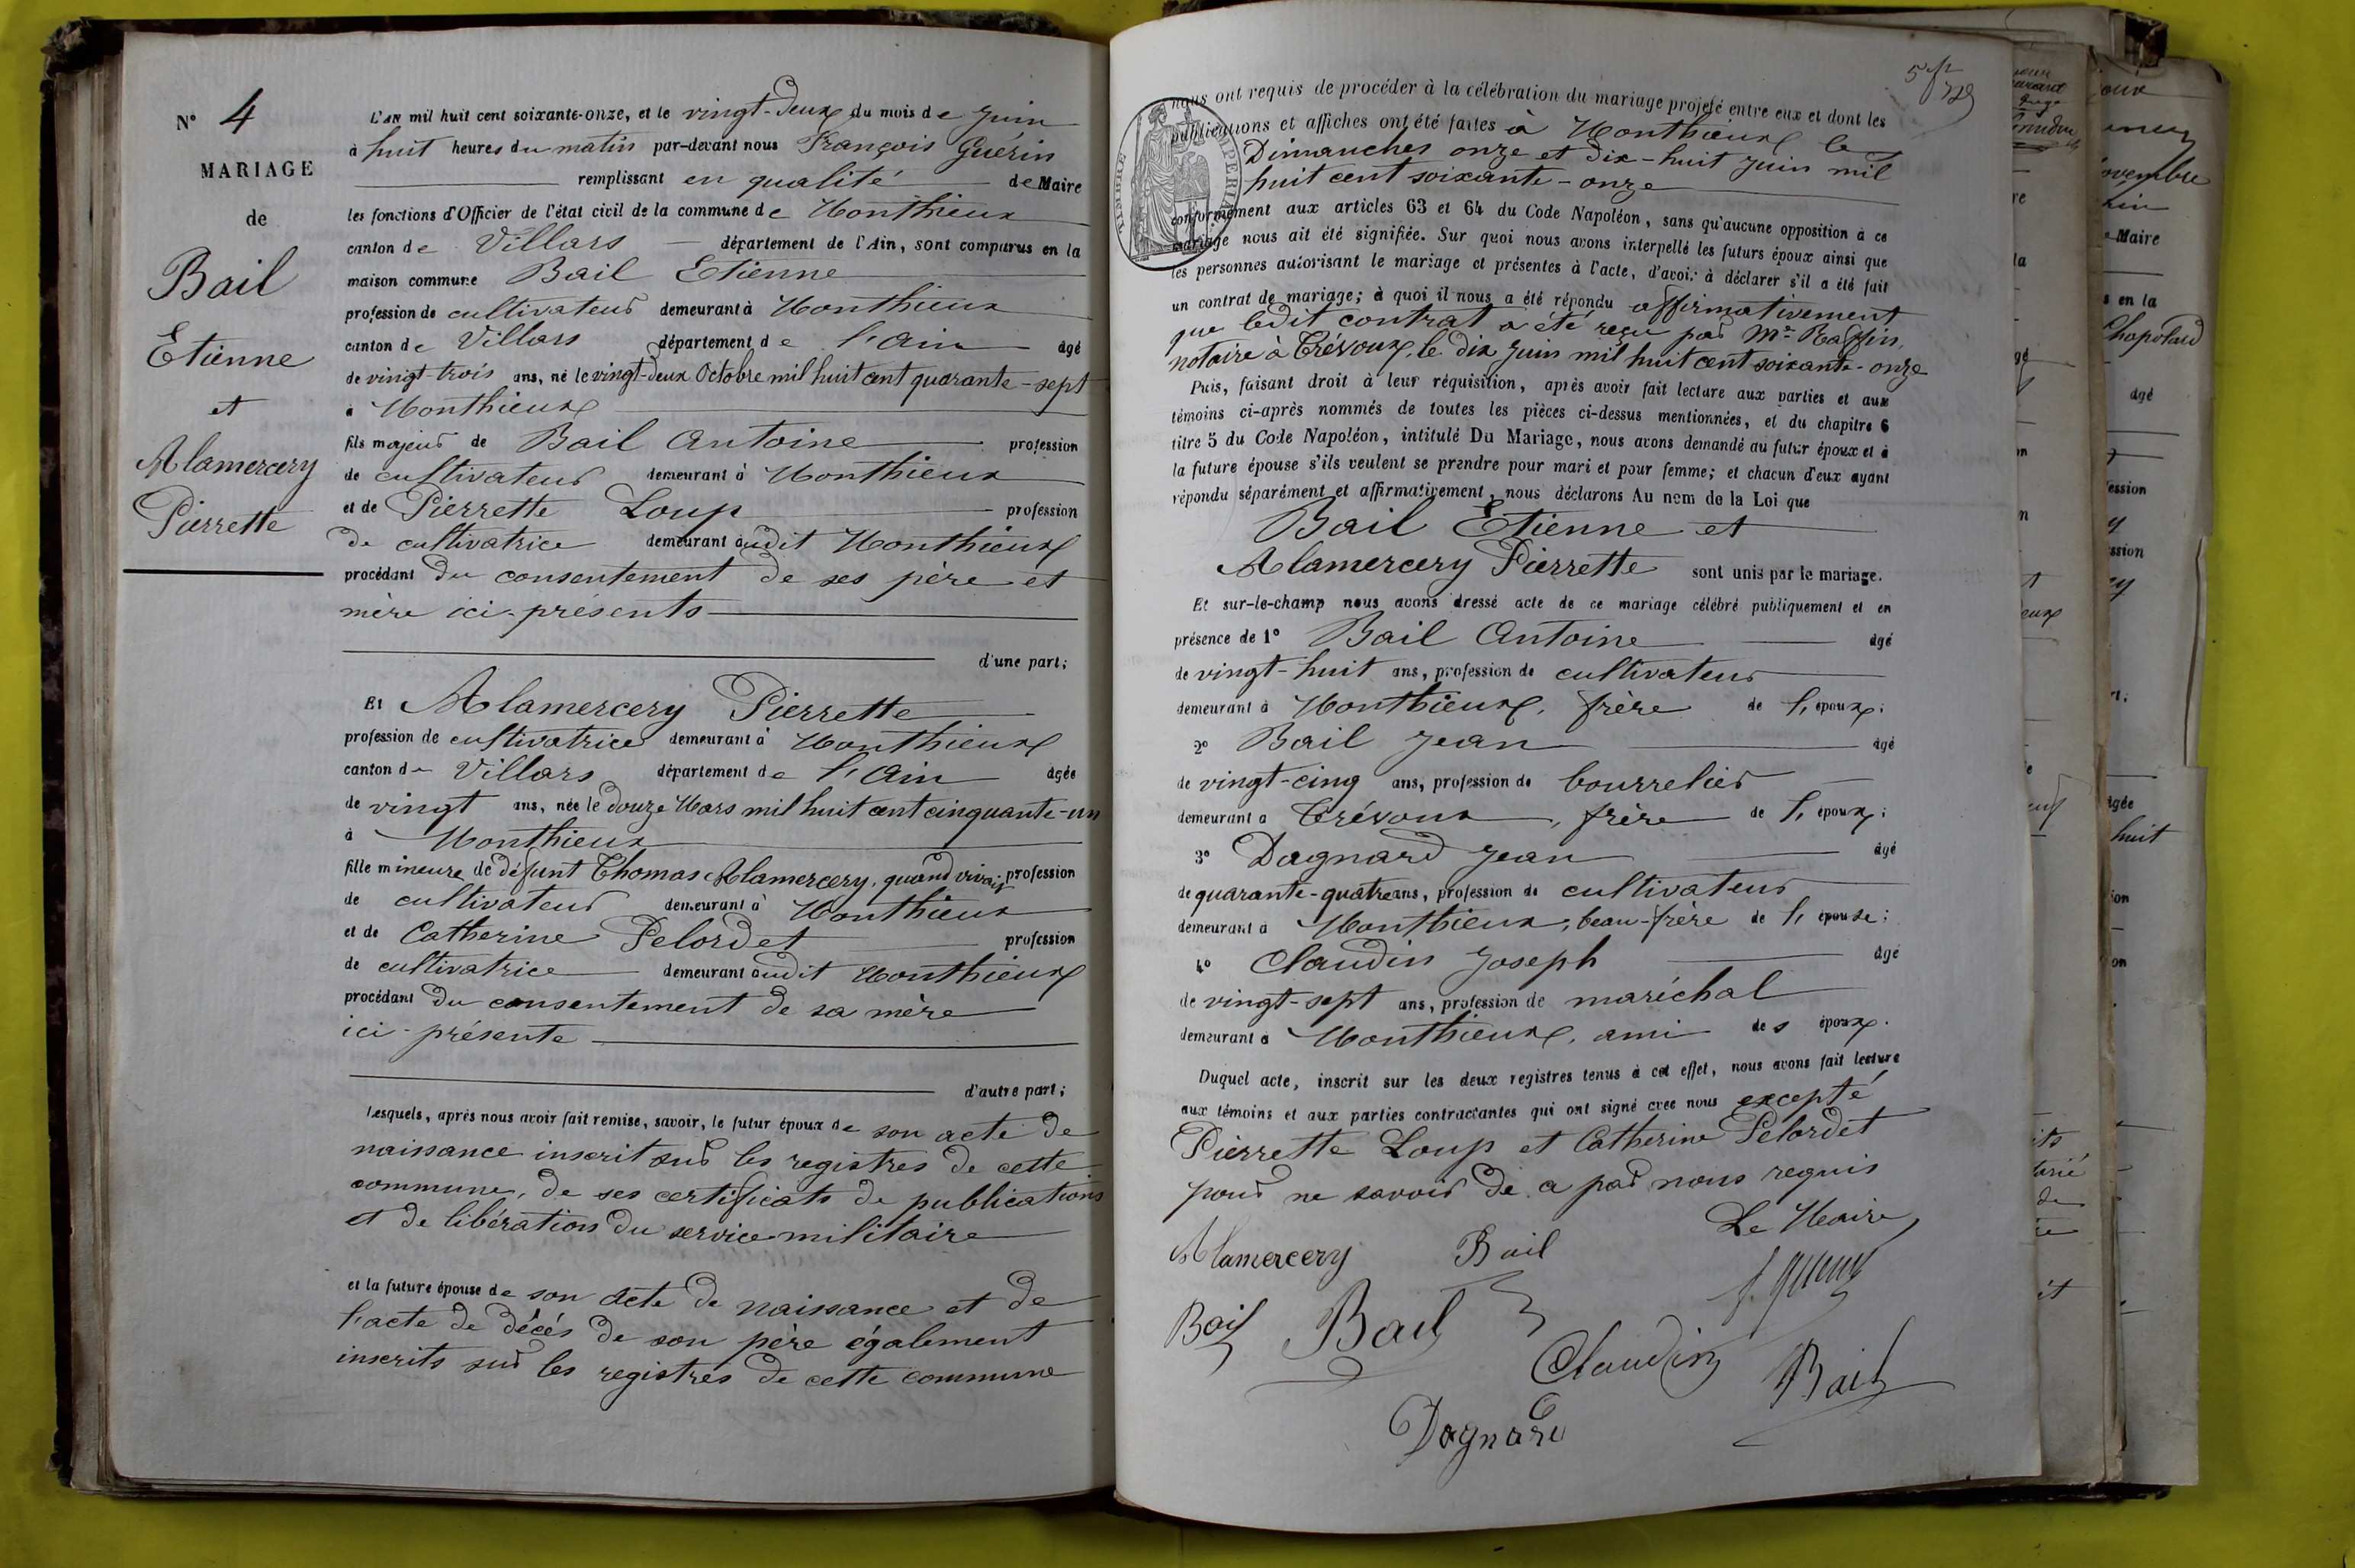 N° 4
MARIAGE
de
Bail
Etienne
et
Alamercery
Pierrette
L'AN mil huit cent soixante-onze, et le vingt-deux du mois de Juin
à huit heures du matin par-devant nous François Guérin
remplissant en qualité de Maire
les fonctions d'Officier de l'état civil de la commune de Monthieux
canton de Villars département de l'Ain, sont comparus en la
maison commune Bail Etienne
profession de cultivateur demeurant à Monthieux
canton de Villars département de l'Ain âgé
de vingt-trois ans, né le vingt-deux Octobre mil huit cent quarante-sept
à Monthieux
fils majeur de Bail Antoine profession
de cultivateur demeurant à Monthieux
et de Pierrette Loup profession
de cultivatrice demeurant audit Monthieux
procédant du consentement de ses père et
mère ici-présents
d'une part;
Et Alamercery Pierrette
profession de cultivatrice demeurant à Monthieux
canton de Villars département de l'Ain âgée
de vingt ans, née le douze Mars mil huit cent cinquante-un
à Monthieux
fille mineure de défunt Thomas Alamercery, quand vivait profession
de cultivateur demeurant à Monthieux
et de Catherine Pelordet profession
de cultivatrice demeurant audit Monthieux
procédant du consentement de sa mère
ici-présente
d'autre part;
Lesquels, après nous avoir fait remise, savoir, le futur époux de son acte de
naissance inscrit sur les registres de cette
commune, de ses certificats de publications
et de libération du service militaire
et la future épouse de son acte de naissance et de
l'acte de décés de son père également
inscrits sur les registres de cette commune
nous ont requis de procéder à la célébration du mariage projeté entre eux et dont les
publications et affiches ont été faites à Monthieux le
Dimanches onze et dix-huit Juin mil
huit cent soixante-onze
conformément aux articles 63 et 64 du Code Napoléon, sans qu'aucune opposition à ce
mariage nous ait été signifiée. Sur quoi nous avons interpellé les futurs époux ainsi que
les personnes autorisant le mariage et présentes à l'acte, d'avoir à déclarer s'il a été fait
un contrat de mariage; à quoi il nous a été répondu affirmativement
que ledit contrat a été reçu par Me Raffin,
notaire à Trévoux, le dix Juin mil huit cent soixante-onze
Puis, faisant droit à leur réquisition, après avoir fait lecture aux parties et aux
témoins ci-après nommés de toutes les pièces ci-dessus mentionnées, et du chapitre 6
titre 5 du Code Napoléon, intitulé Du Mariage, nous avons demandé au futur époux et à
la future épouse s'ils veulent se prendre pour mari et pour femme; et chacun d'eux ayant
répondu séparément et affirmativement, nous déclarons Au nom de la Loi que
Bail Etienne et
Alamercery Pierrette sont unis par le mariage.
Et sur-le-champ nous avons dressé acte de ce mariage célébré publiquement et en
présence de 1° Bail Antoine âgé
de vingt-huit ans, profession de cultivateur
demeurant à Monthieux, frère de l'époux;
2° Bail Jean âgé
de vingt-cinq ans, profession de bourrelier
demeurant à Trévoux, frère de l'époux;
3° Dagnard Jean âgé
de quarante-quatre ans, profession de cultivateur
demeurant à Monthieux, beau-frère de l'épouse;
4° Claudin Joseph âgé
de vingt-sept ans, profession de maréchal
demeurant à Monthieux, ami des époux.
Duquel acte, inscrit sur les deux registres tenus à cet effet, nous avons fait lecture
aux témoins et aux parties contractantes qui ont signé avec nous excepté
Pierrette Loup et Catherine Pelordet
pour ne savoir de ce par nous requis
Le Maire,
Alamercery Bail
f. Guérin
Bail Bail
Claudin Bail
Dagnard